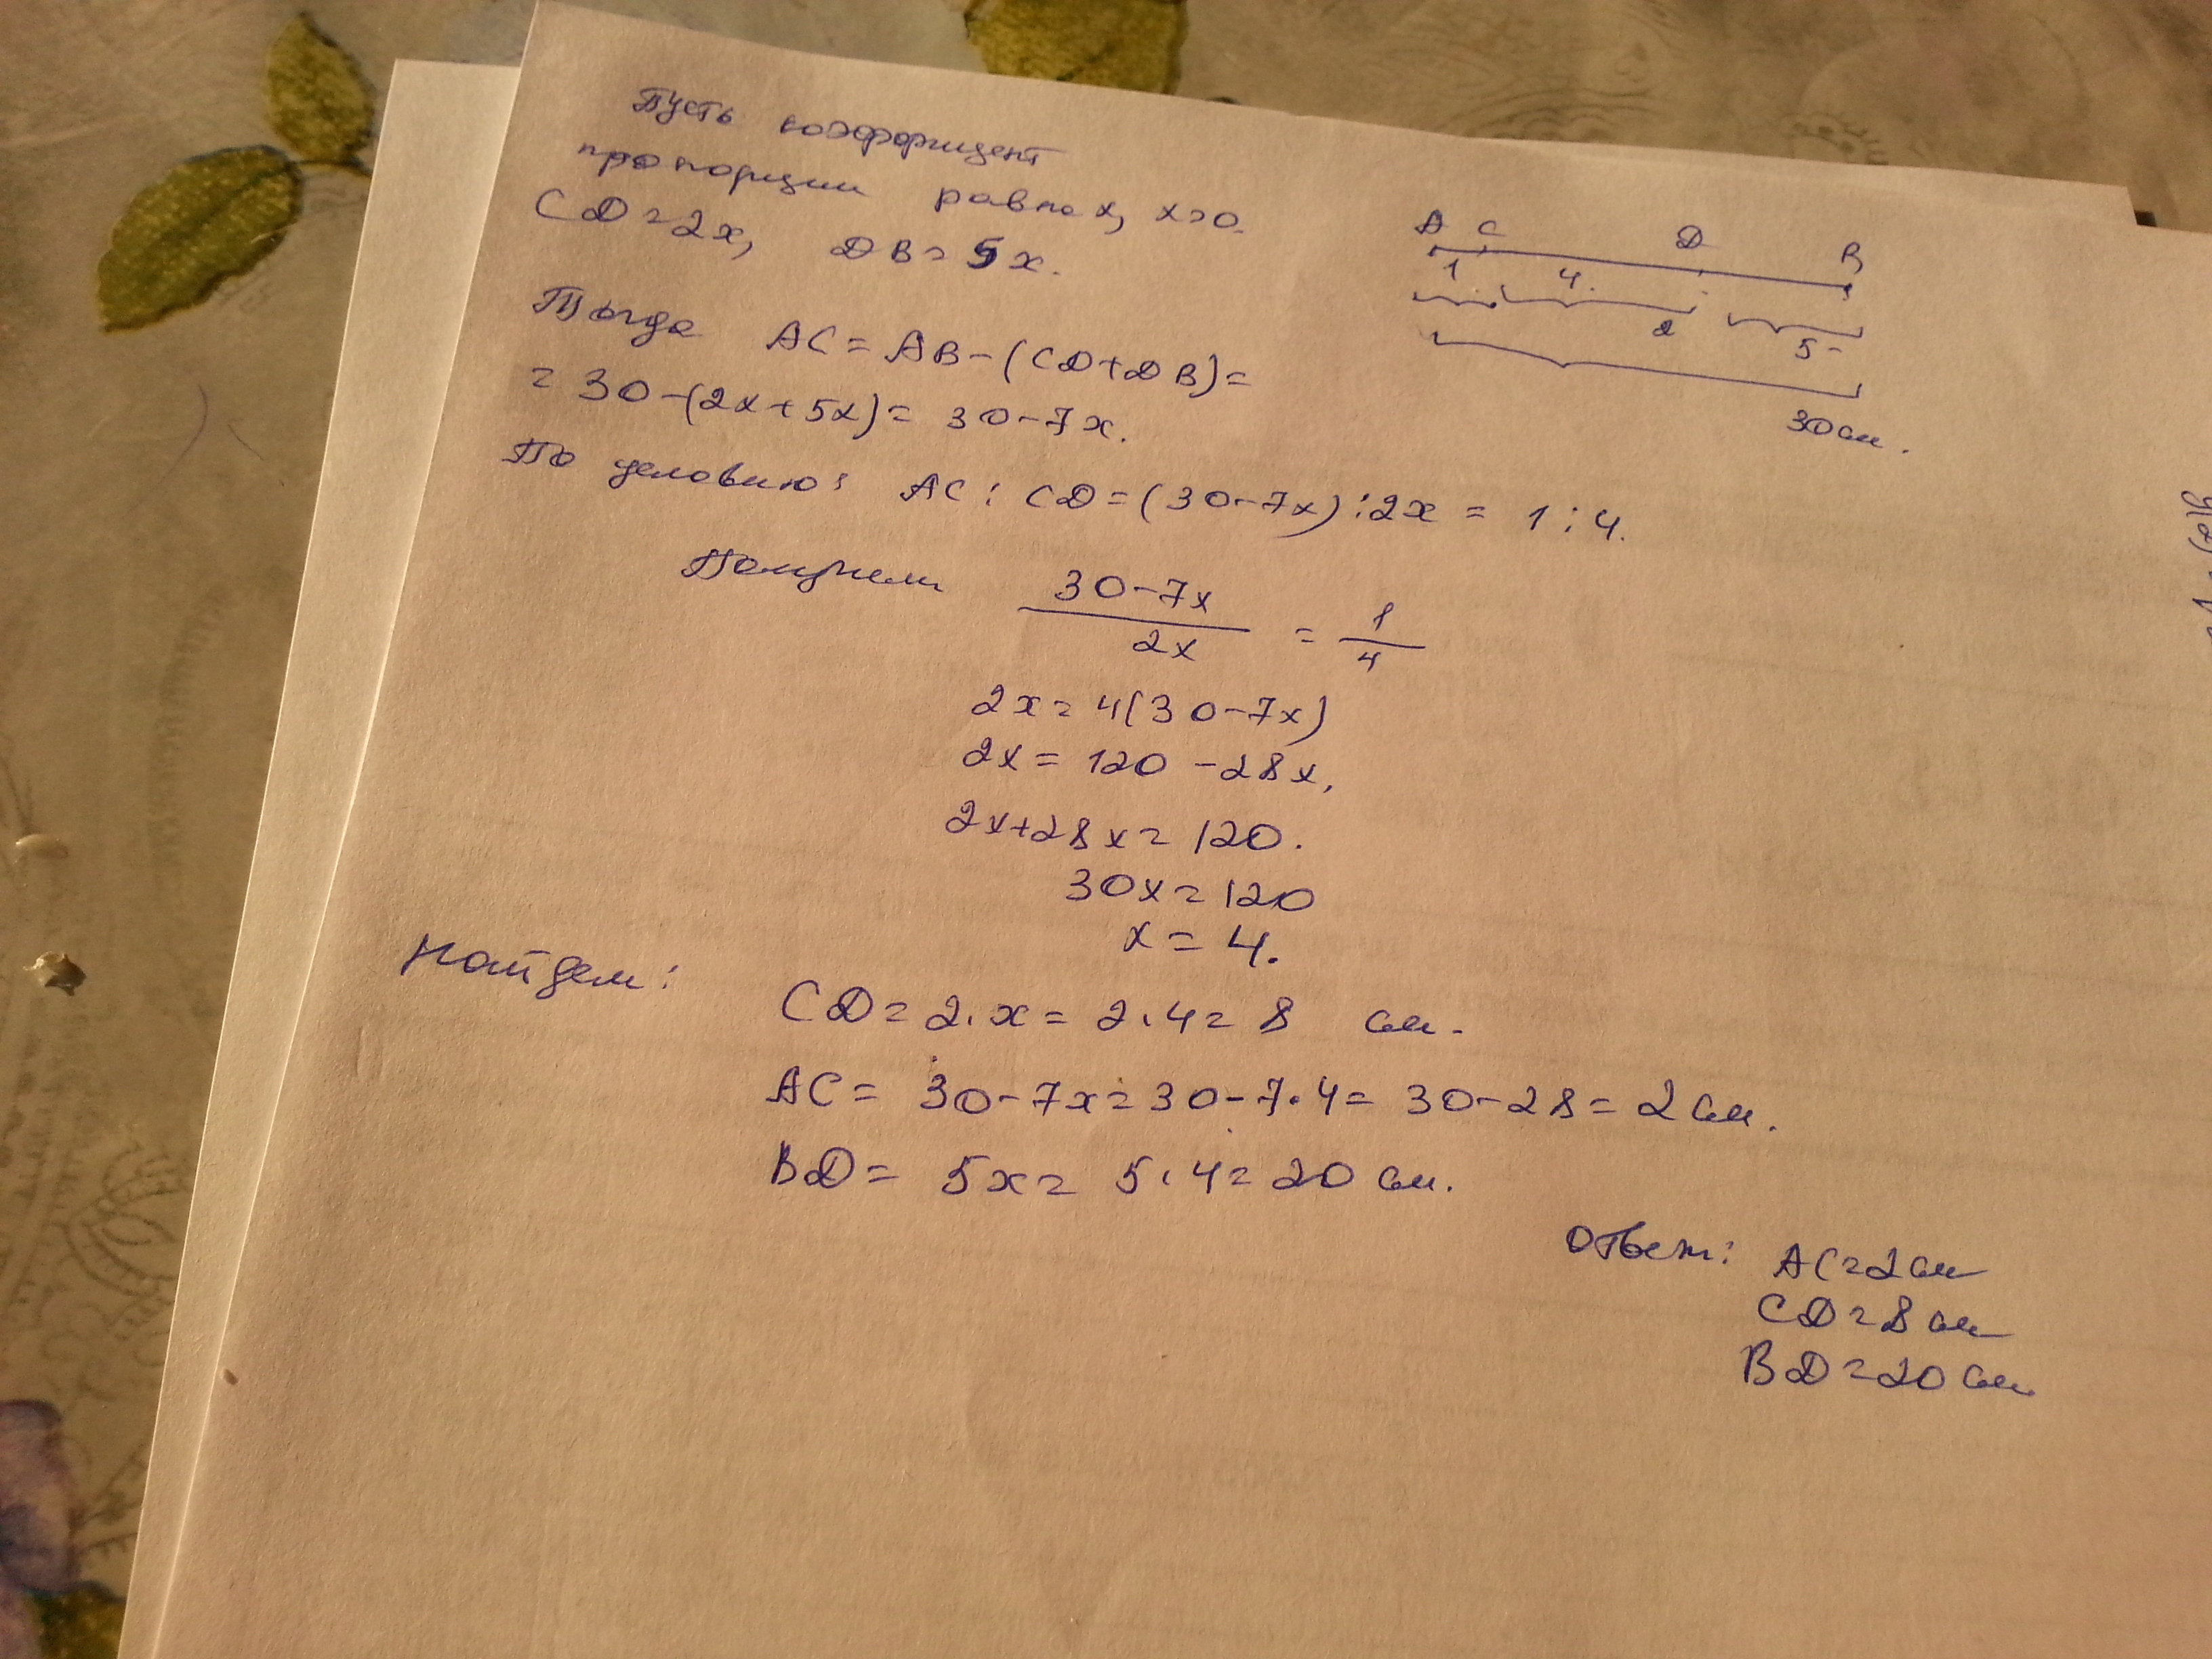 Пусть коэффициент
пропорции равен x, x>0.
CD=2x, DB=5x.
Тогда AC=AB-(CD+DB)=
=30-(2x+5x)=30-7x.
По условию: AC:CD=(30-7x):2x=1:4.
Получили 30-7x / 2x = 1 / 4
2x=4(30-7x)
2x=120-28x,
2x+28x=120.
30x=120
x=4.
Найдем:
CD=2·x=2·4=8 см.
AC=30-7x=30-7·4=30-28=2 см.
BD=5x=5·4=20 см.
Ответ: AC=2 см
CD=8 см
BD=20 см
A C D B
1 4
2 5
30 см.